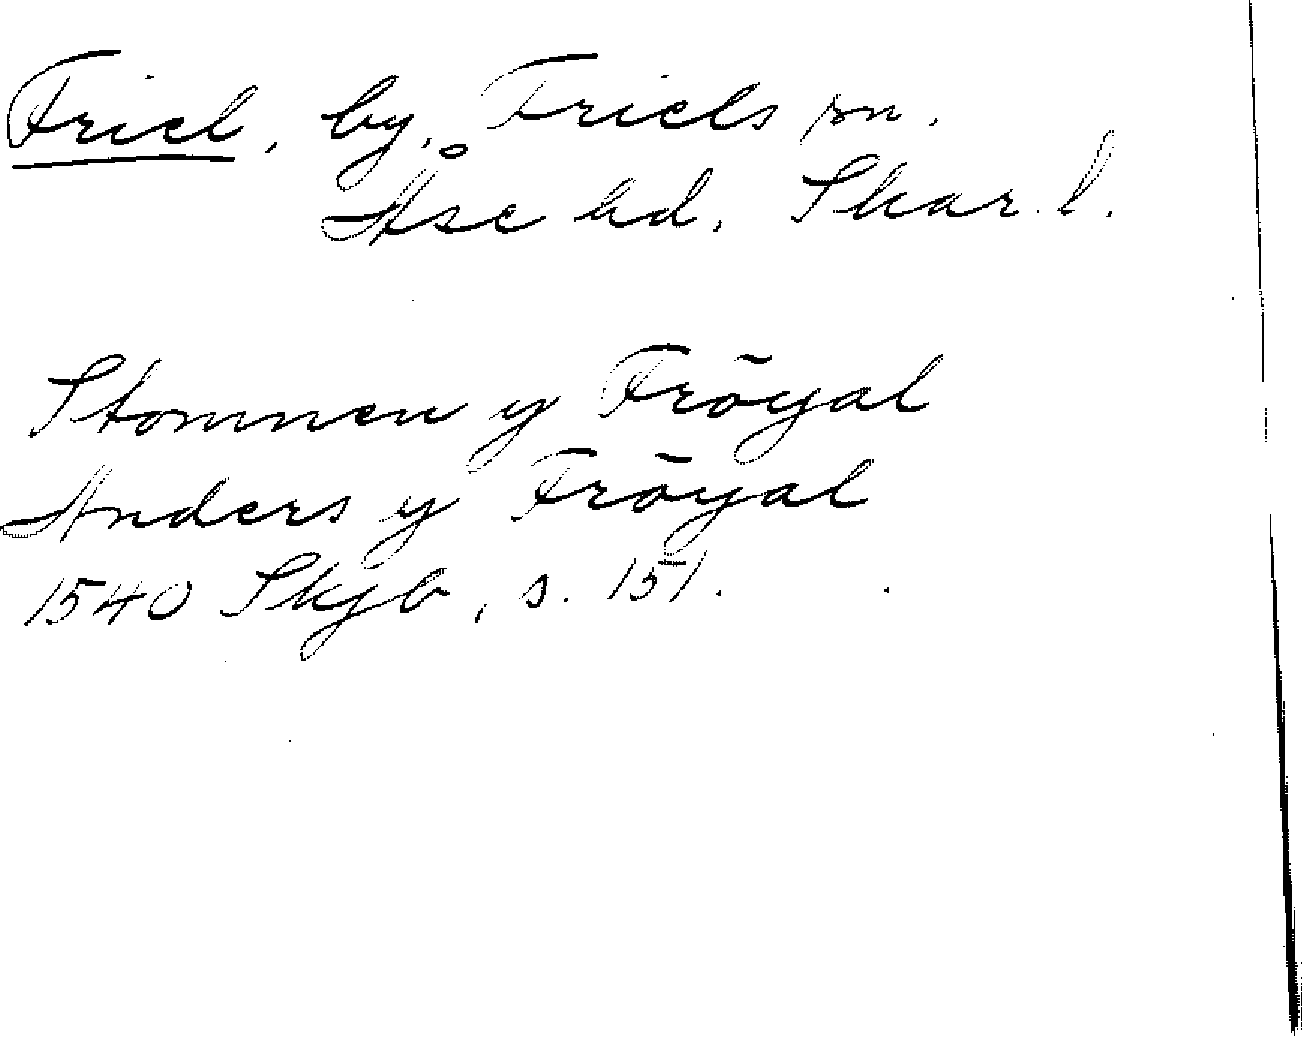 Friel, by, Friels sn.
Åse hd, Skar. l.
Stomnen y Frōyal
Anders y Frōyal
1540 Skjb, s. 151.